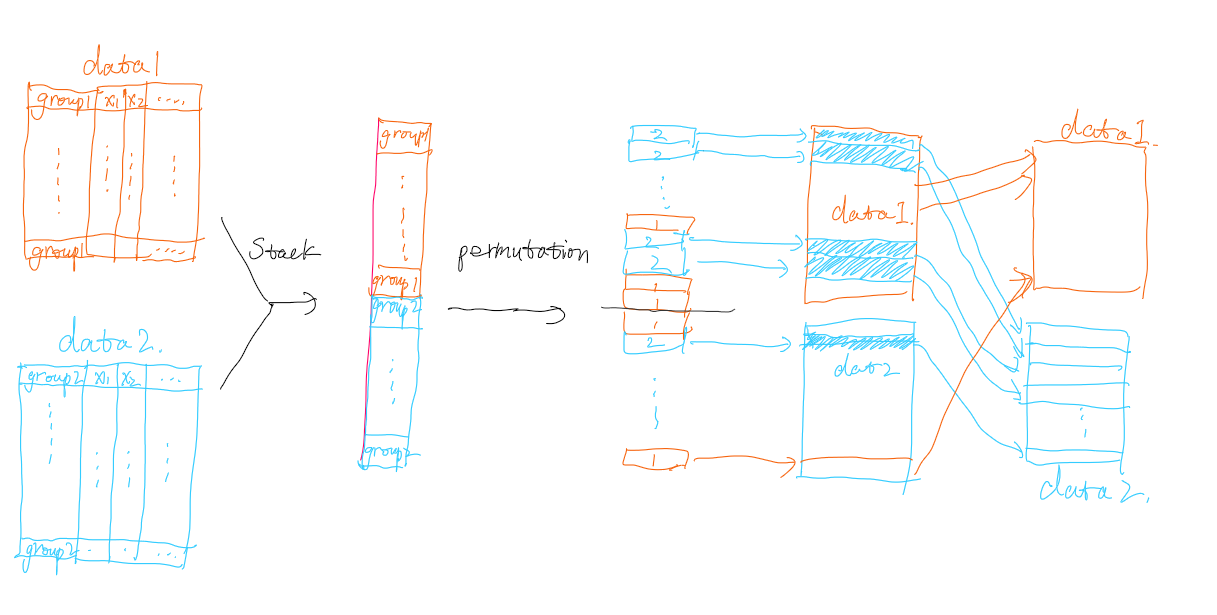 data1
group1 x1 x2 ....
group1 ....
data2.
group2 x1 x2 ...
group2 . . ....
Stack
group1
group1
group2
group2
permutation
2
2
1
2
2
1
1
1
2
1
data1.
dat2
data1.
data2.